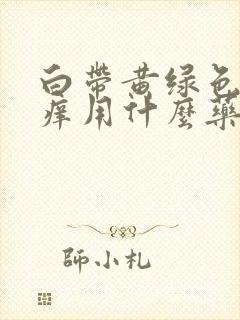 白帶黄绿色
痒用什麼藥
師小札